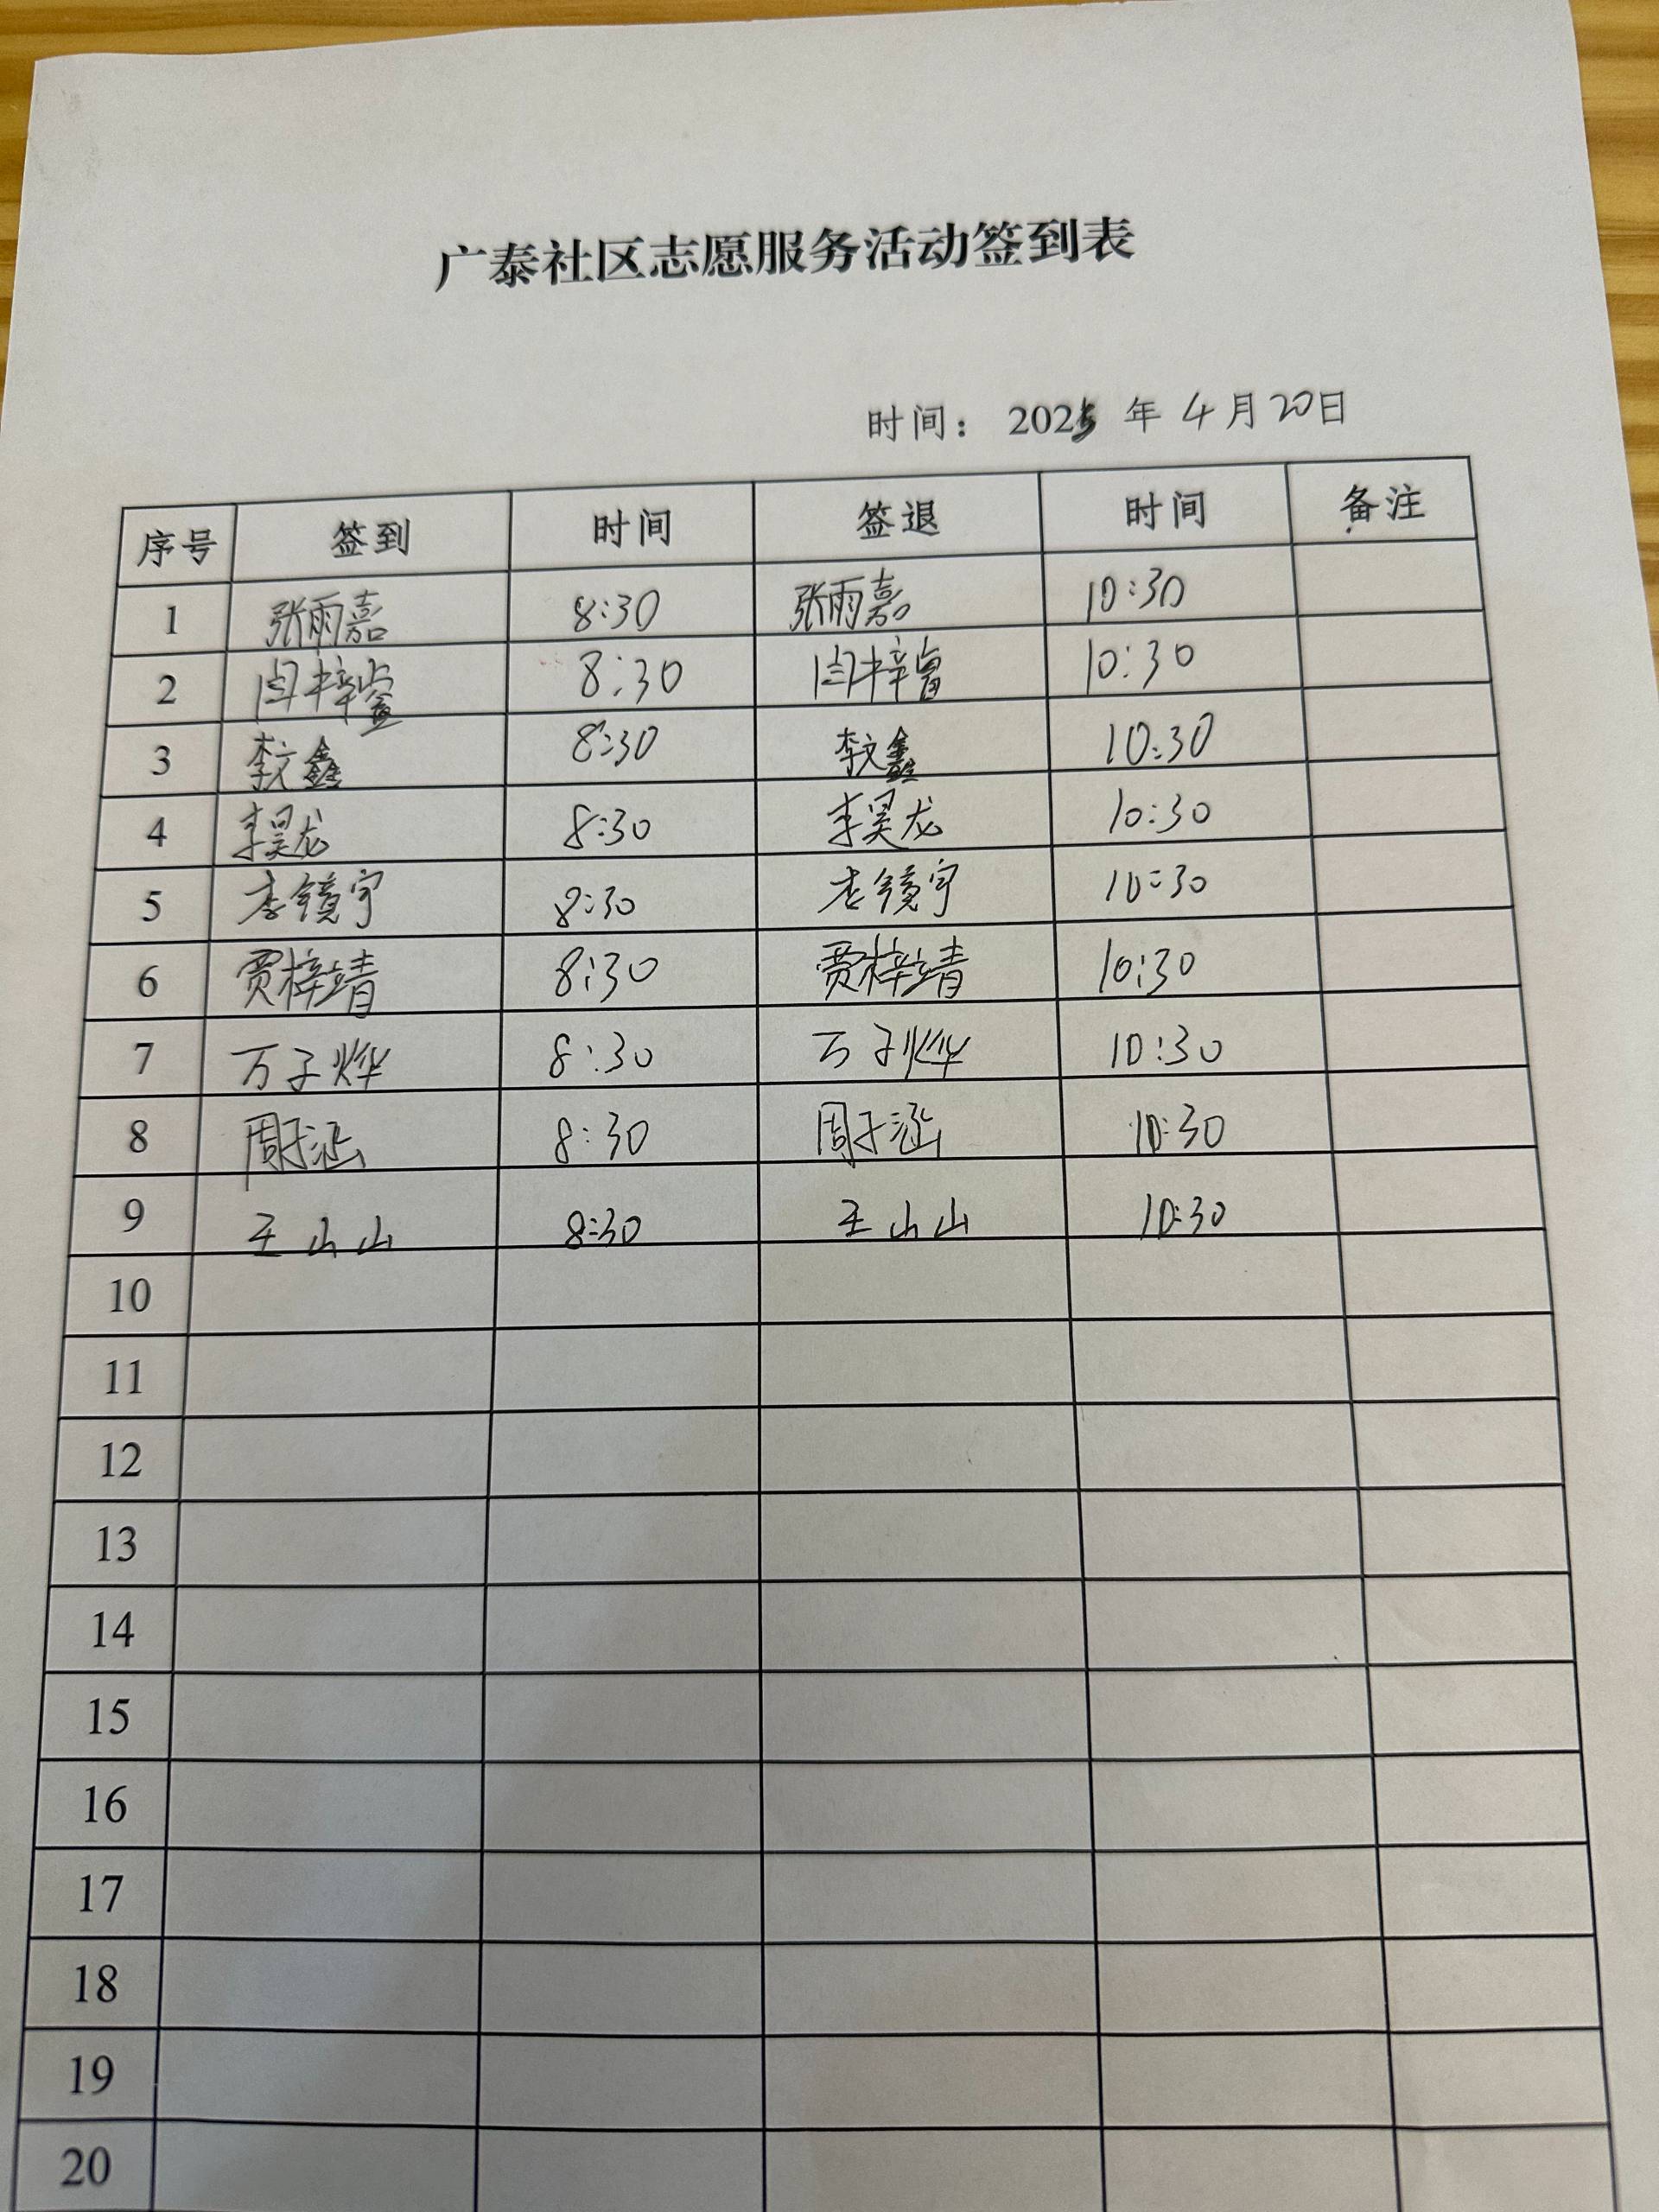 广泰社区志愿服务活动签到表
时间： 2025 年 4 月 20 日
序号 签到 时间 签退 时间 备注
1 张雨嘉 8:30 张雨嘉 10:30
2 闫梓 8:30 闫梓 10:30
3 李文鑫 8:30 李文鑫 10:30
4 李昊龙 8:30 李昊龙 10:30
5 李镜宇 8:30 李镜宇 10:30
6 贾梓靖 8:30 贾梓靖 10:30
7 万子烨 8:30 万子烨 10:30
8 周子涵 8:30 周子涵 10:30
9 王山山 8:30 王山山 10:30
10
11
12
13
14
15
16
17
18
19
20